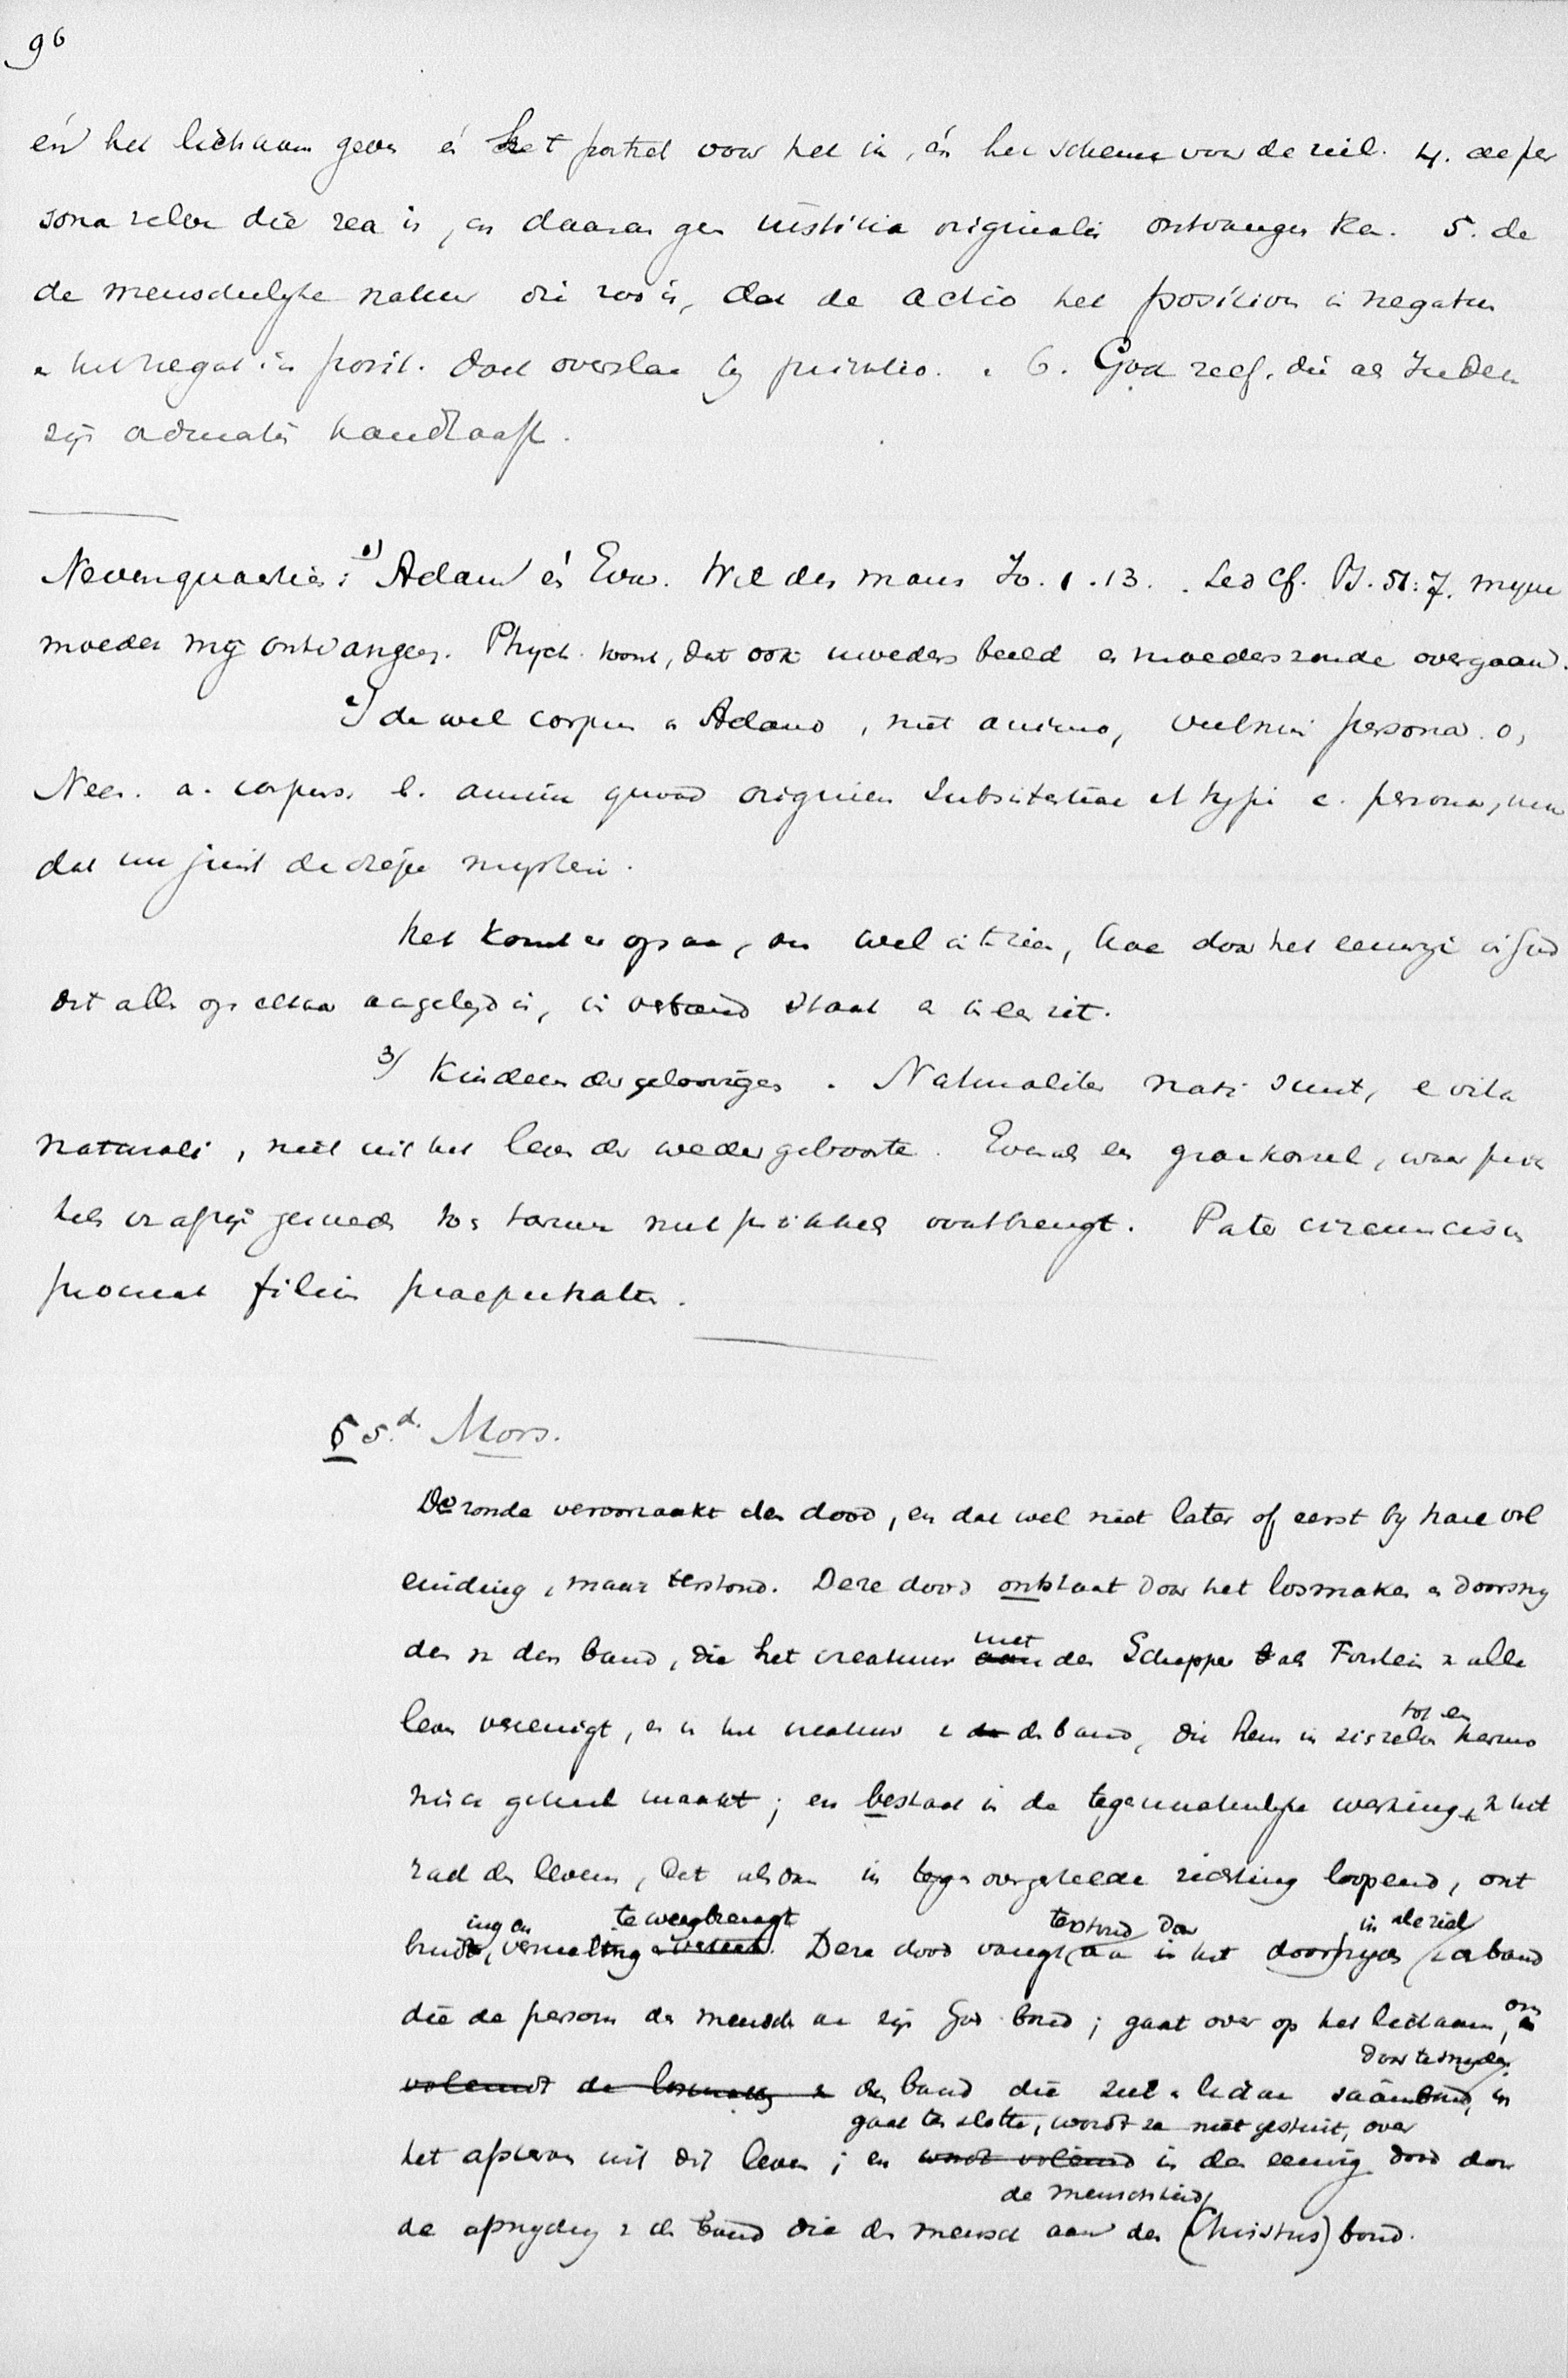 96
én het lichaam geven én het portret voor het in, én het schema voor de ziel. 4. de per
sona zelve die rea is, en daaran geen iustitia originalis ontvangen kan. 5. de
de menschelyke natuur die zoo is, dat de actio het positieve in negatieve
en het negat. in posit. doet overslaan by privatio. 6. God zelf, die als Iudex
zijn ordinatie handhaaft.
Nevenquaesties: 1) Adam én Eva. Wil des mans Jo. 1.13. Sed cf. Ps. 51:7. myne
moeder mij ontvangen. Phych. toont, dat ook moeders beeld en moederszonde overgaan.
2) de wel corpus a Adamo, niet anima, persona
Neen. a. corpus. b. anima quoad originem substantiae et typi c. persona,
dat nu juist de diepe mysterie.
het komt er op aan, om wel in te zien, hoe door het eeuwige in God
dit alles op elkaar aangelegd is, in verband staat en in een zit.
3) Kinderen der geloovigen. Naturaliter nati sunt, e vita
naturali, niet uit het leven der wedergeboorte. Evenals een graankorrel, waar
het af gemaeid is toch met voortbrengt. Pater circumcisus
procreat filium praeputiatum.
§ 5.d. Mors.
De zonde veroorzaakt den dood, en dat wel niet later of eerst by hare vol
einding, maar terstond. Deze dood ontstaat door het losmaken en doorsny
den van den band, die het creatuur met aan den Schepper als Fontein van alle
leven vereenigt, en in het creatuur van den band, die hem in zichzelven tot een harmo
nisch geheel maakt; en bestaat in de tegennatuurlyke werking van het
rad des levens, dat alsdan in tegenovergestelde richting loopend, ont
binding en vernieling teweegbrengt. Deze dood vangt terstond aan door in het doorsnyden in de ziel van den band
die de persoon des menschen aan zijn God bond; gaat over op het lichaam, om
voleindt de losmaking van den band die ziel en lichaam saâmbond, door te snyden in
het afsterven uit dit leven; en wordt voleind gaat ten slotte, wordt ze niet gestuit, over in den eeuwigen dood door
de afsnyding van den band die den mensch aan de menschheid (Christus) bond.